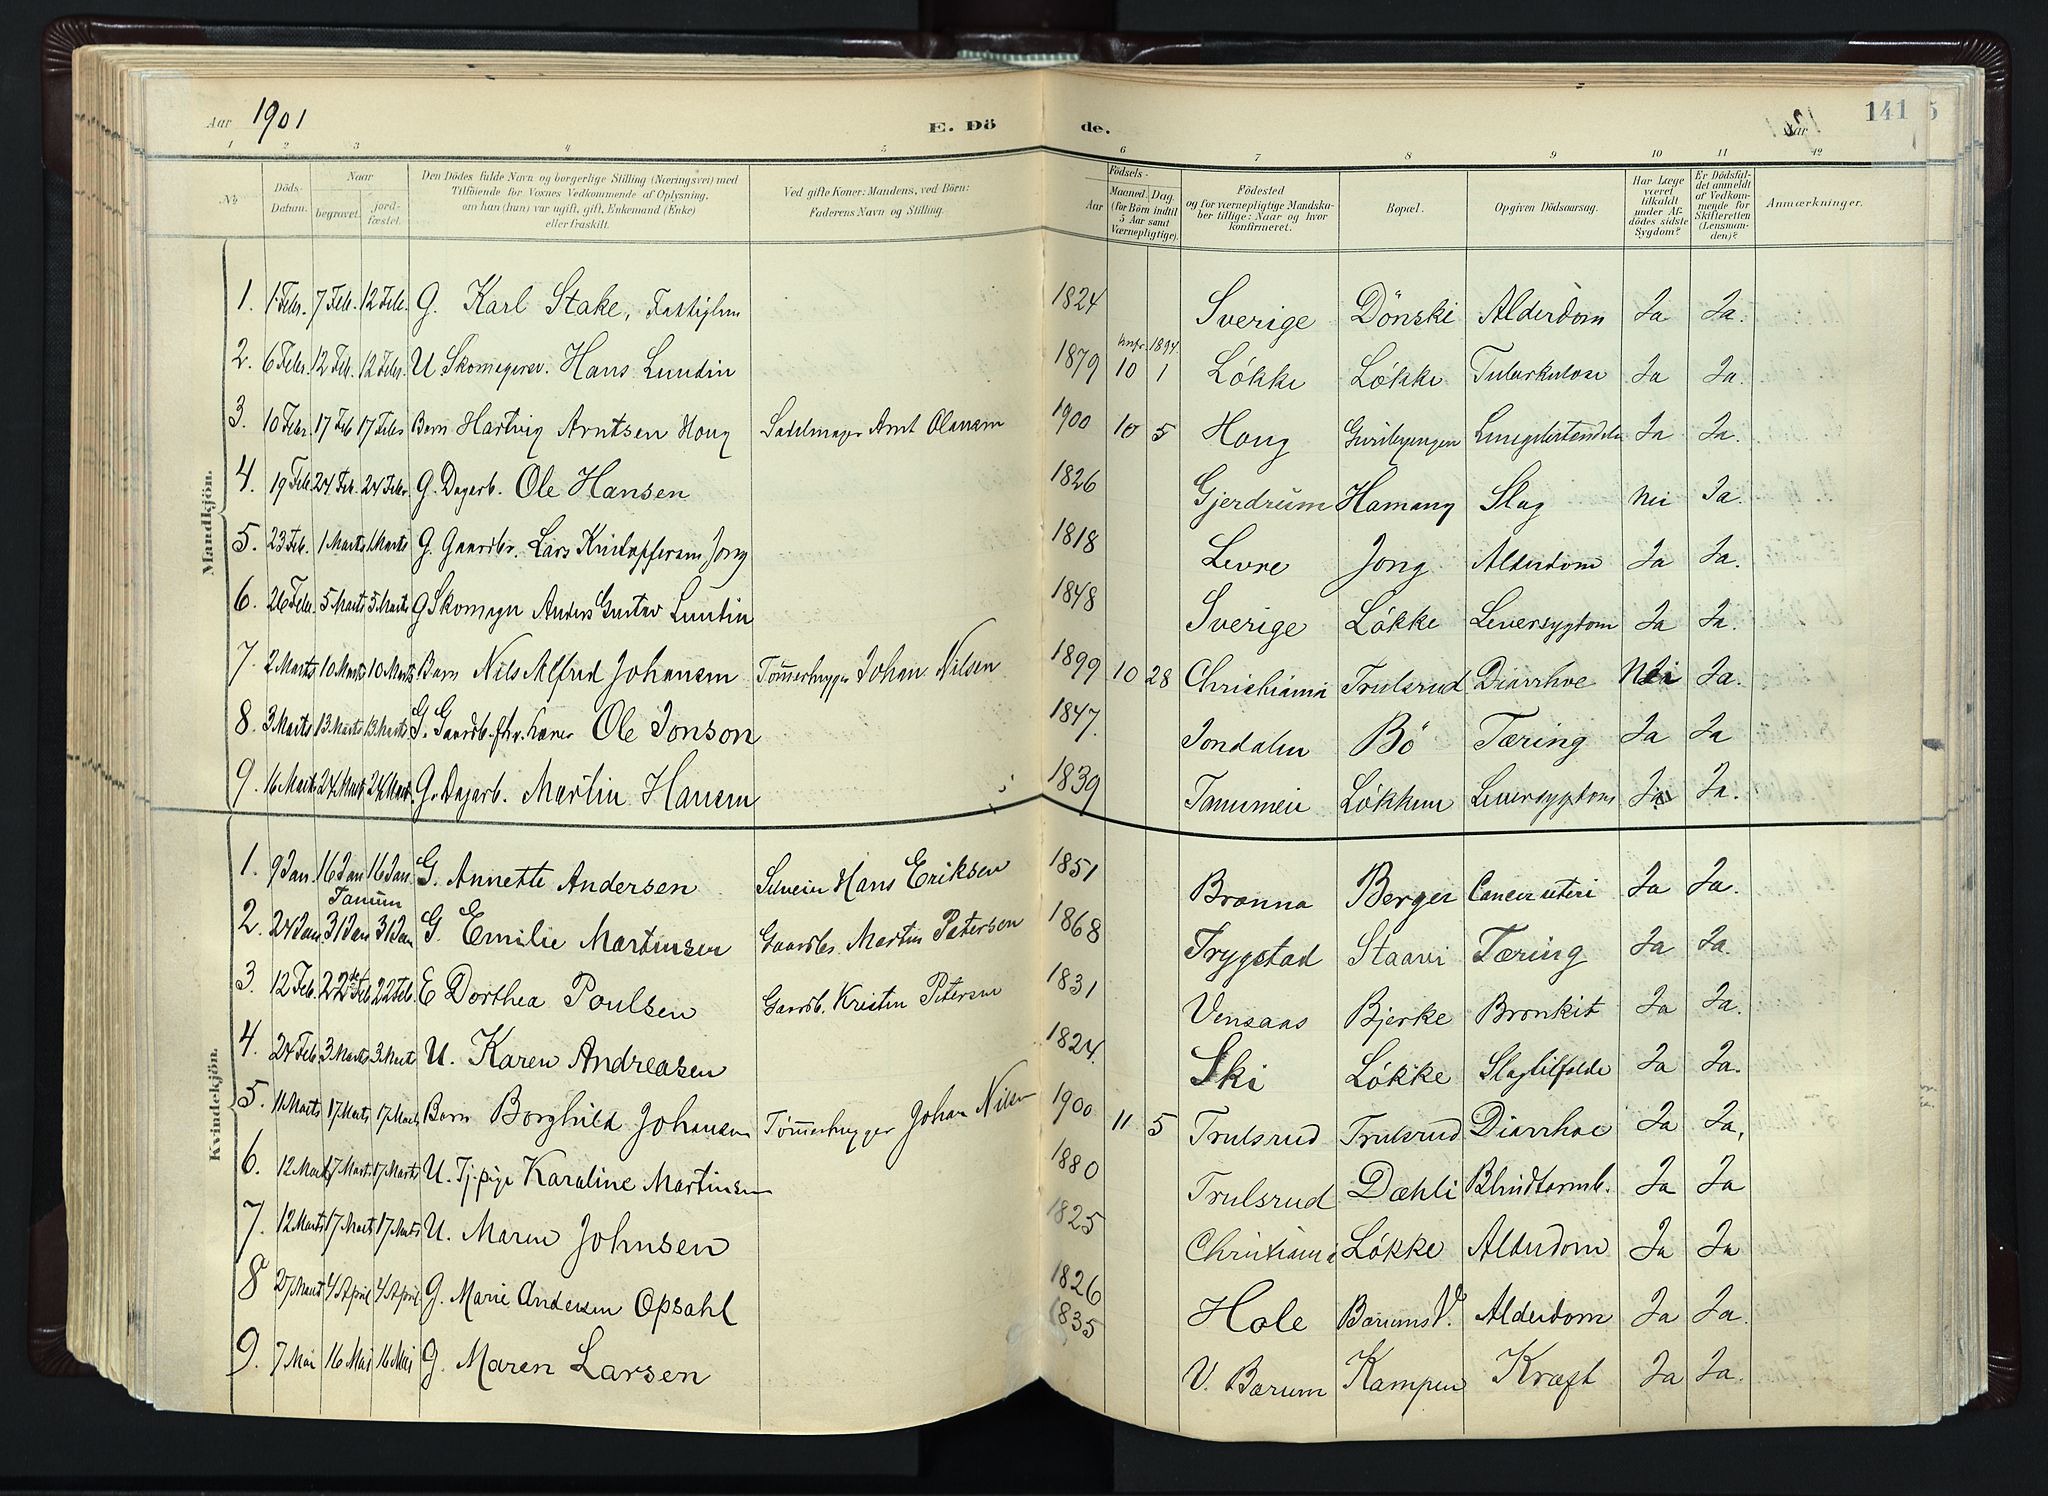 Aar 1901
E. Dö de.
141
1 2 3 4 5 6 7 8 9 10 11 12
No
Döds-Datum.
Naar begravet. jord-fæstet.
Den Dödes fulde Navn og borgerlige Stilling (Næringsvei) med Tilföiende for Voxnes Vedkommende af Oplysning, om han (hun) var ugift, gift, Enkemand (Enke) eller fraskilt.
Ved gifte Koner: Mandens, ved Börn: Faderens Navn og Stilling.
Födsels-
Aar
Maaned. Dag. (for Börn indtil 5 Aar samt Værnepligtige).
Födested og for værnepligtige Mandskaber tillige: Naar og hvor konfirmeret.
Bopæl.
Opgiven Dödsaarsag.
Har Læge været tilkaldt under Afdödes sidste Sygdom?
Er Dödsfaldet anmeldt af Vedkommende for Skifteretten (Lensmanden)?
Anmærkninger.
Mandkjön.
1. 1 Febr. 7 Feb. 12 Feb. G. Karl Stake, 1824 Sverige Dönski Alderdom Ja Ja.
2. 6 Febr. 12 Feb. 12 Febr. U Skomager. Hans Lundin 1879 konf. 1894. 10 1 Løkke Løkke Tuberkulose Ja Ja.
3. 10 Febr. 17 Feb 17 Febr Barn Hartvig Arntsen Houg Sadelmager Arnt Olausen 1900 10 5 Houg Ja Ja.
4. 19 Feb. 24 Feb. 24 Febr. G. Dagarb. Ole Hansen 1826 Gjerdrum Hamang Slag Nei Ja.
5. 23 Feb. 1 Marts 1 Marts G. Gaardbr. Lars Kristoffersen Jong 1818 Levre Jong Alderdom Ja Ja.
6. 26 Febr. 5 Marts 5 Marts G Skomager Anders Gustav Lundin 1848 Sverige Løkke Leversygdom Ja Ja.
7. 2 Marts 10 Marts 10 Marts Barn Nils Alfred Johansen Tömmerhugger Johan Nilsen 1899 10 28 Christiania Trulsrud Diarrhoe Nei Ja.
8. 3 Marts 13 Marts 13 Marts G. Gaardb. fhv. Lærer Ole Jonson 1847. Jondalen Bö Tæring Ja Ja
9. 16 Marts 24 Marts 24 Marts. G. Dagarb. Martin Hansen 1839 Tanumeie Løkken Leversygdom Ja Ja.
Kvindekjön.
1. 9 Jan. 16 Jan 16 Jan. G. Annette Andersen Selveier Hans Eriksen 1851 Brønna Berger Cancer uteri Ja Ja.
Tanum
2. 24 Jan 31 Jan 31 Jan G. Emilie Martinsen Gaardbr. Martin Peterson 1868 Trygstad Staavi Tæring Ja Ja.
3. 12 Feb. 22de Feb. 22 Feb. E Dorthea Poulsen Gaardb. Kristen Petersen 1831 Vensaas Bjerke Bronkit Ja Ja.
4. 24 Feb 3 Marts 3 Marts U. Karen Andreasen 1824. Ski Løkke Slagtilfælde Ja Ja.
5. 11 Marts 17 Marts 17 Marts Barn Borghild Johansen Tömmerhugger Johan Nilsen 1900 11 5 Trulsrud Trulsrud Diarrhoe Ja Ja,
6. 12 Marts 17 Marts 17 Marts U. Tj.pige Karoline Martinsen 1880 Trulsrud Dæhli Blindtarmb. Ja Ja
7. 12 Marts 17 Marts 17 Marts U. Maren Johnsen 1825 Christiania Løkke Alderdom Ja Ja
8 27 Marts 4 April 4 April G. Marie Andersen Opsahl 1826 Hole Bærums V. Alderdom Ja Ja.
9. 7 Mai 16 Mai 16 Mai G. Maren Larsen 1835 V. Bærum Kampen Kræft Ja Ja.